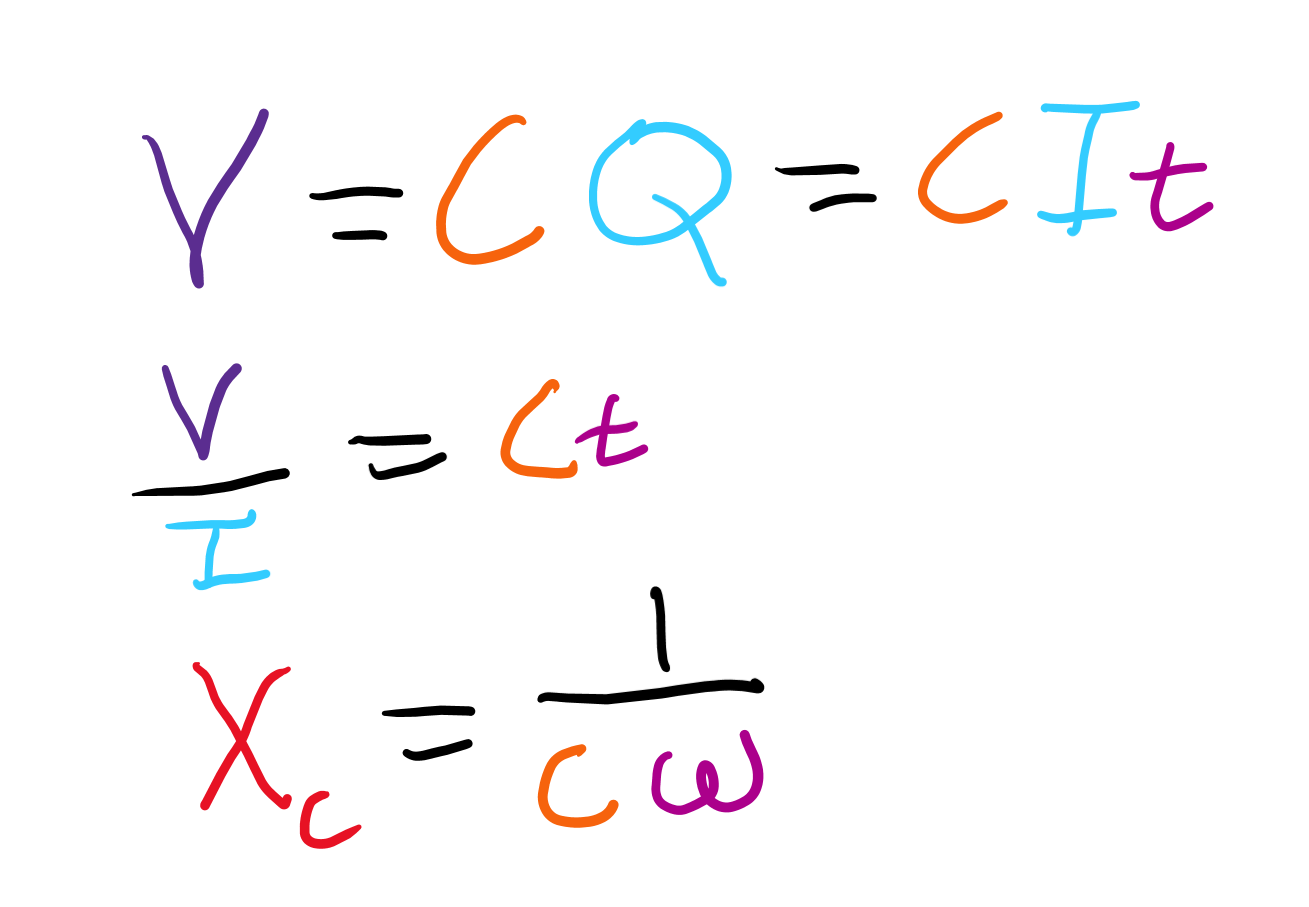 V = CQ = CIt
V/I = Ct
X_c = 1/Cω